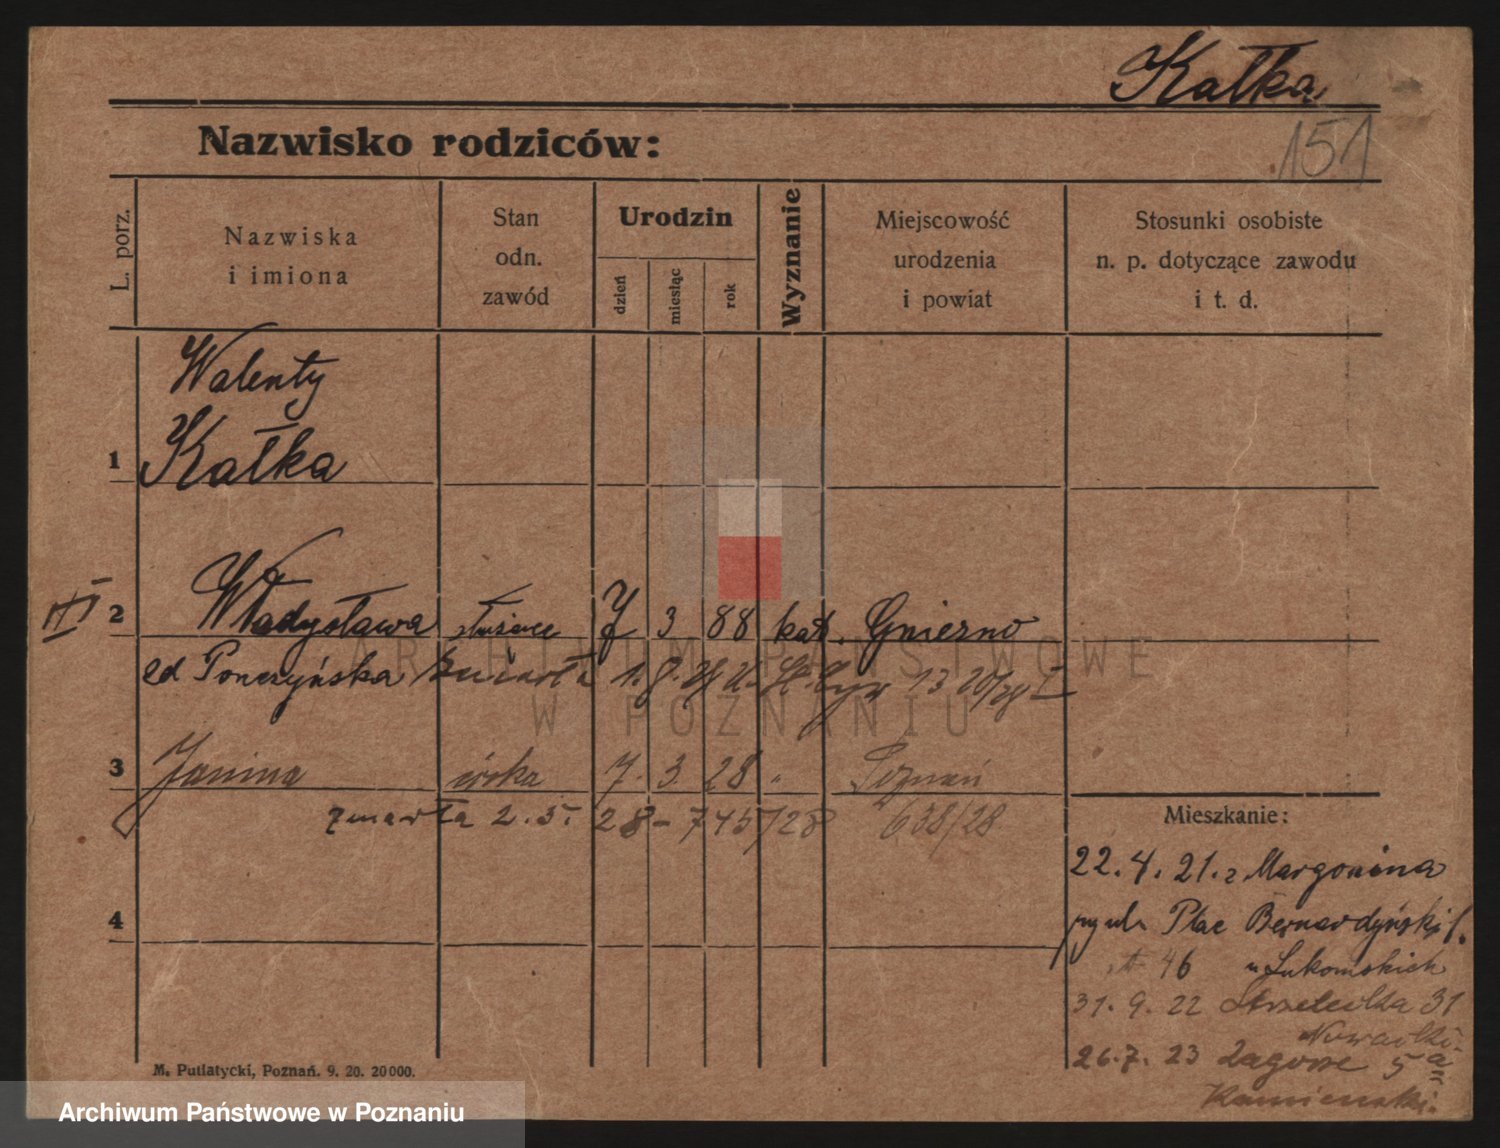 Kałka
151
Nazwisko rodziców:
L. porz.
Nazwiska
i imiona
Stan
odn.
zawód
Urodzin
dzień
miesiąc
rok
Wyznanie
Miejscowość
urodzenia
i powiat
Stosunki osobiste
n. p. dotyczące zawodu
i t. d.
Walenty
1 Kałka
2 Władysława służąca 7 3 88 kat. Gniezno
Ponczyńska
3 Janina córka 7. 3. 28 " Poznań
zmarła 2. 5. 28 - 745/28 638/28
4
Mieszkanie:
22. 4. 21. z Margonina
Plac Bernardyński 1.
46 u Łukomskich
31. 9. 22 Strzelecka 31
Nowacki
26. 7. 23 Łagowe 5a
Kamienski.
M. Putiatycki, Poznań. 9. 20. 20000.
ARCHIWUM PAŃSTWOWE
W POZNANIU
Archiwum Państwowe w Poznaniu